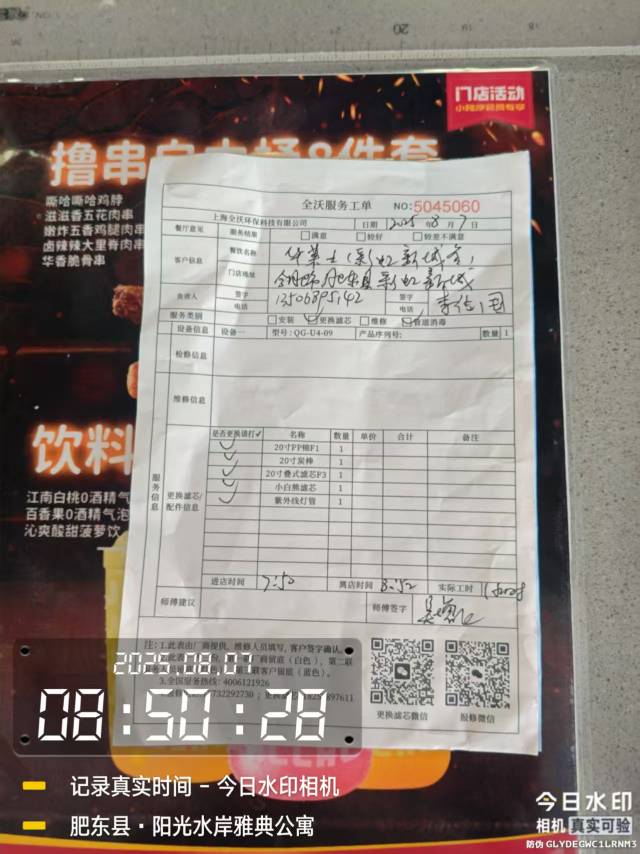 20
门店活动
小程序会员专享
撸串自由
嘶哈嘶哈鸡脖
滋滋香五花肉串
嫩炸五香鸡腿肉串
卤辣辣大里脊肉串
华香脆骨串
饮料
江南白桃0酒精气
百香果0酒精气泡
沁爽酸甜菠萝饮
全沃服务工单 NO:5045060
上海全沃环保科技有限公司 日期 2025 8 7
餐厅意见 服务结果 满意 较好 较差不满意
客户信息 餐饮名称 华莱士(彩虹新城店)
门店地址 合肥肥东县彩虹新城
负责人 签字 签字
电话 13506895142 电话
服务类别 安装 更换滤芯 维修 管道消毒
设备信息 设备一 型号:QG-U4-09 产品序列号: 数量 1
检修信息
维修信息
服务信息
更换滤芯/
配件信息
是否更换请打✓ 名称 数量 单价 合计 备注
20寸PP棉F1 1
20寸炭棒 1
20寸叠式滤芯F3 1
小白熊滤芯 1
紫外线灯管 1
进店时间 7:50 离店时间 8:52 实际工时
师傅建议 师傅签字
注:1.此表由厂商提供,维修人员填写,客户签字确认。
厂商留底(白色),第二联
客户留底(蓝色)。
3.全国服务热线:4006121926
更换滤芯微信 报修微信
2025.08.07
08:50:28
记录真实时间 - 今日水印相机
肥东县·阳光水岸雅典公寓
今日水印
相机 真实可验
防伪 GLYDEGWC1LRNM3